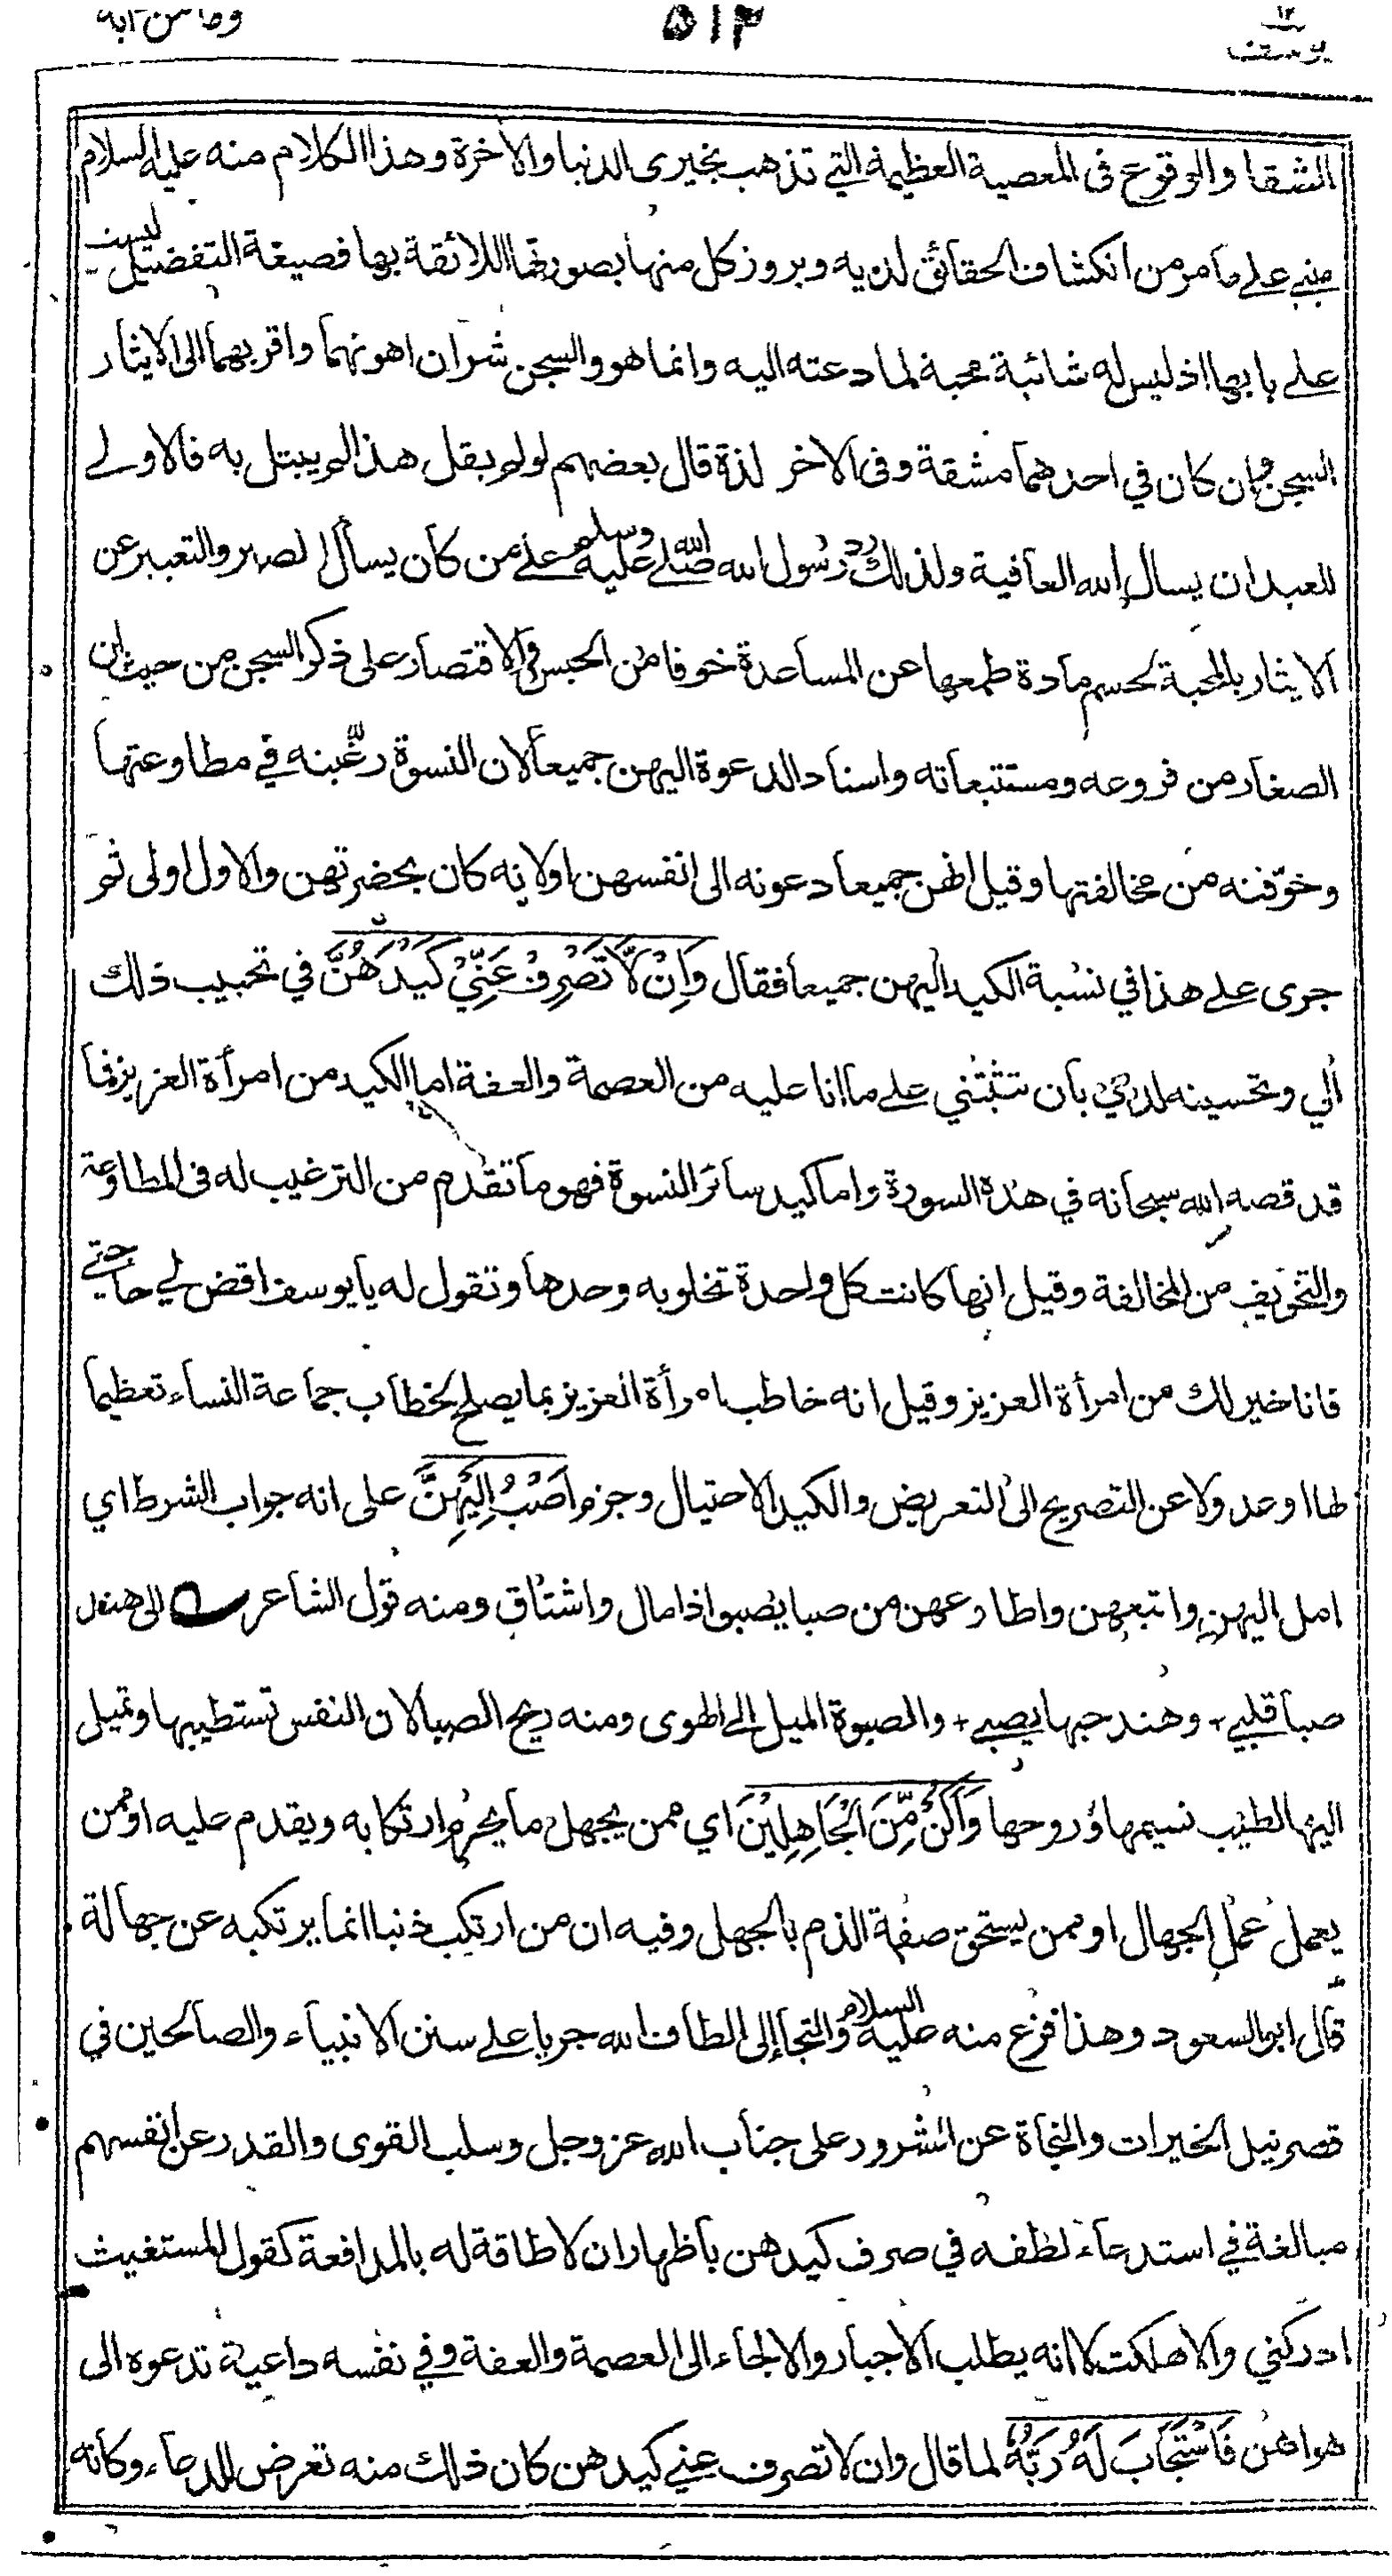 يوسف ١٢ ٥١٣ وما من آبة
الشقا والوقوع فى المعصية العظيمة التي تذهب بخيرى الدنيا والاخرة وهذا الكلام منه عليه السلام
مبنى على ما مر من انكشاف الحقائق لديه وبروز كل منها بصورتها اللائقة بها فصيغة التفضيل ليست
على بابها اذ ليس له شائبة محبة لما دعته اليه وانما هو والسجن شران اهونهما واقربهما الى الايثار
السجن وان كان في احدهما مشقة وفى الاخر لذة قال بعضهم لو لم يقل هذا لم يبتل به فالاولى
للعبد ان يسال الله العافية ولذلك رد رسول الله صلى الله عليه وسلم على من كان يسأل الصبر والتعبير عن
الايثار بالمحبة لحسم مادة طمعها عن المساعدة خوفا من الحبس والاقتصار على ذكر السجن من حيث ان
الصغار من فروعه ومستتبعاته واسناد الدعوة اليهن جميعا لان النسوة رغّبنه في مطاوعتها
وخوّفنه من مخالفتها وقيل انهن جميعا دعونه الى انفسهن اولانه كان بحضرتهن والاول اولى ثم
جرى على هذا في نسبة الكيد اليهن جميعا فقال وَاِنْ لَّا تَصْرِفْ عَنِّيْ كَيْدَهُنَّ في تحبيب ذلك
الي وتحسينه لدي بان تثبتني على ما انا عليه من العصمة والعفة اما الكيد من امرأة العزيز فما
قد قصه الله سبحانه في هذه السورة واما كيد سائر النسوة فهو ما تقدم من الترغيب له فى المطاوعة
والتخويف من المخالفة وقيل انها كانت كل واحدة تخلو به وحدها وتقول له يا يوسف اقض لي حاجتي
فانا خير لك من امرأة العزيز وقيل انه خاطب امرأة العزيز بما يصلح لخطاب جماعة النساء تعظيما
لها او عدولا عن التصريح الى التعريض والكيد الاحتيال وجزم اَصْبُ اِلَيْهِنَّ على انه جواب الشرط اي
امل اليهن واتبعهن واطاوعهن من صبا يصبو اذا مال واشتاق ومنه قول الشاعر الى هند
صبا قلبي + وهند حبها يصبي + والصبوة الميل الى الهوى ومنه ريح الصبا لان النفس تستطيبها وتميل
اليها لطيب نسيمها وروحها وَاَكُنْ مِّنَ الْجَاهِلِيْنَ اي ممن يجهل ما يحرم ارتكابه ويقدم عليه او ممن
يعمل عمل الجهال او ممن يستحق صفة الذم بالجهل وفيه ان من ارتكب ذنبا انما يرتكبه عن جهالة
قال ابو السعود وهذا فزع منه عليه السلام والتجا إلى الطاف الله جريا على سنن الانبياء والصالحين في
قصر نيل الخيرات والنجاة عن الشرور على جناب الله عز وجل وسلب القوى والقدر عن انفسهم
مبالغة في استدعاء لطفه في صرف كيدهن باظهار ان لا طاقة له بالمدافعة كقول المستغيث
ادركني والا هلكت لا انه يطلب الاجبار والالجاء الى العصمة والعفة وفي نفسه داعية تدعوه الى
هواهن فَاسْتَجَابَ لَهُ رَبُّهٗ لما قال وان لا تصرف عني كيدهن كان ذلك منه تعرض للدعاء وكانه